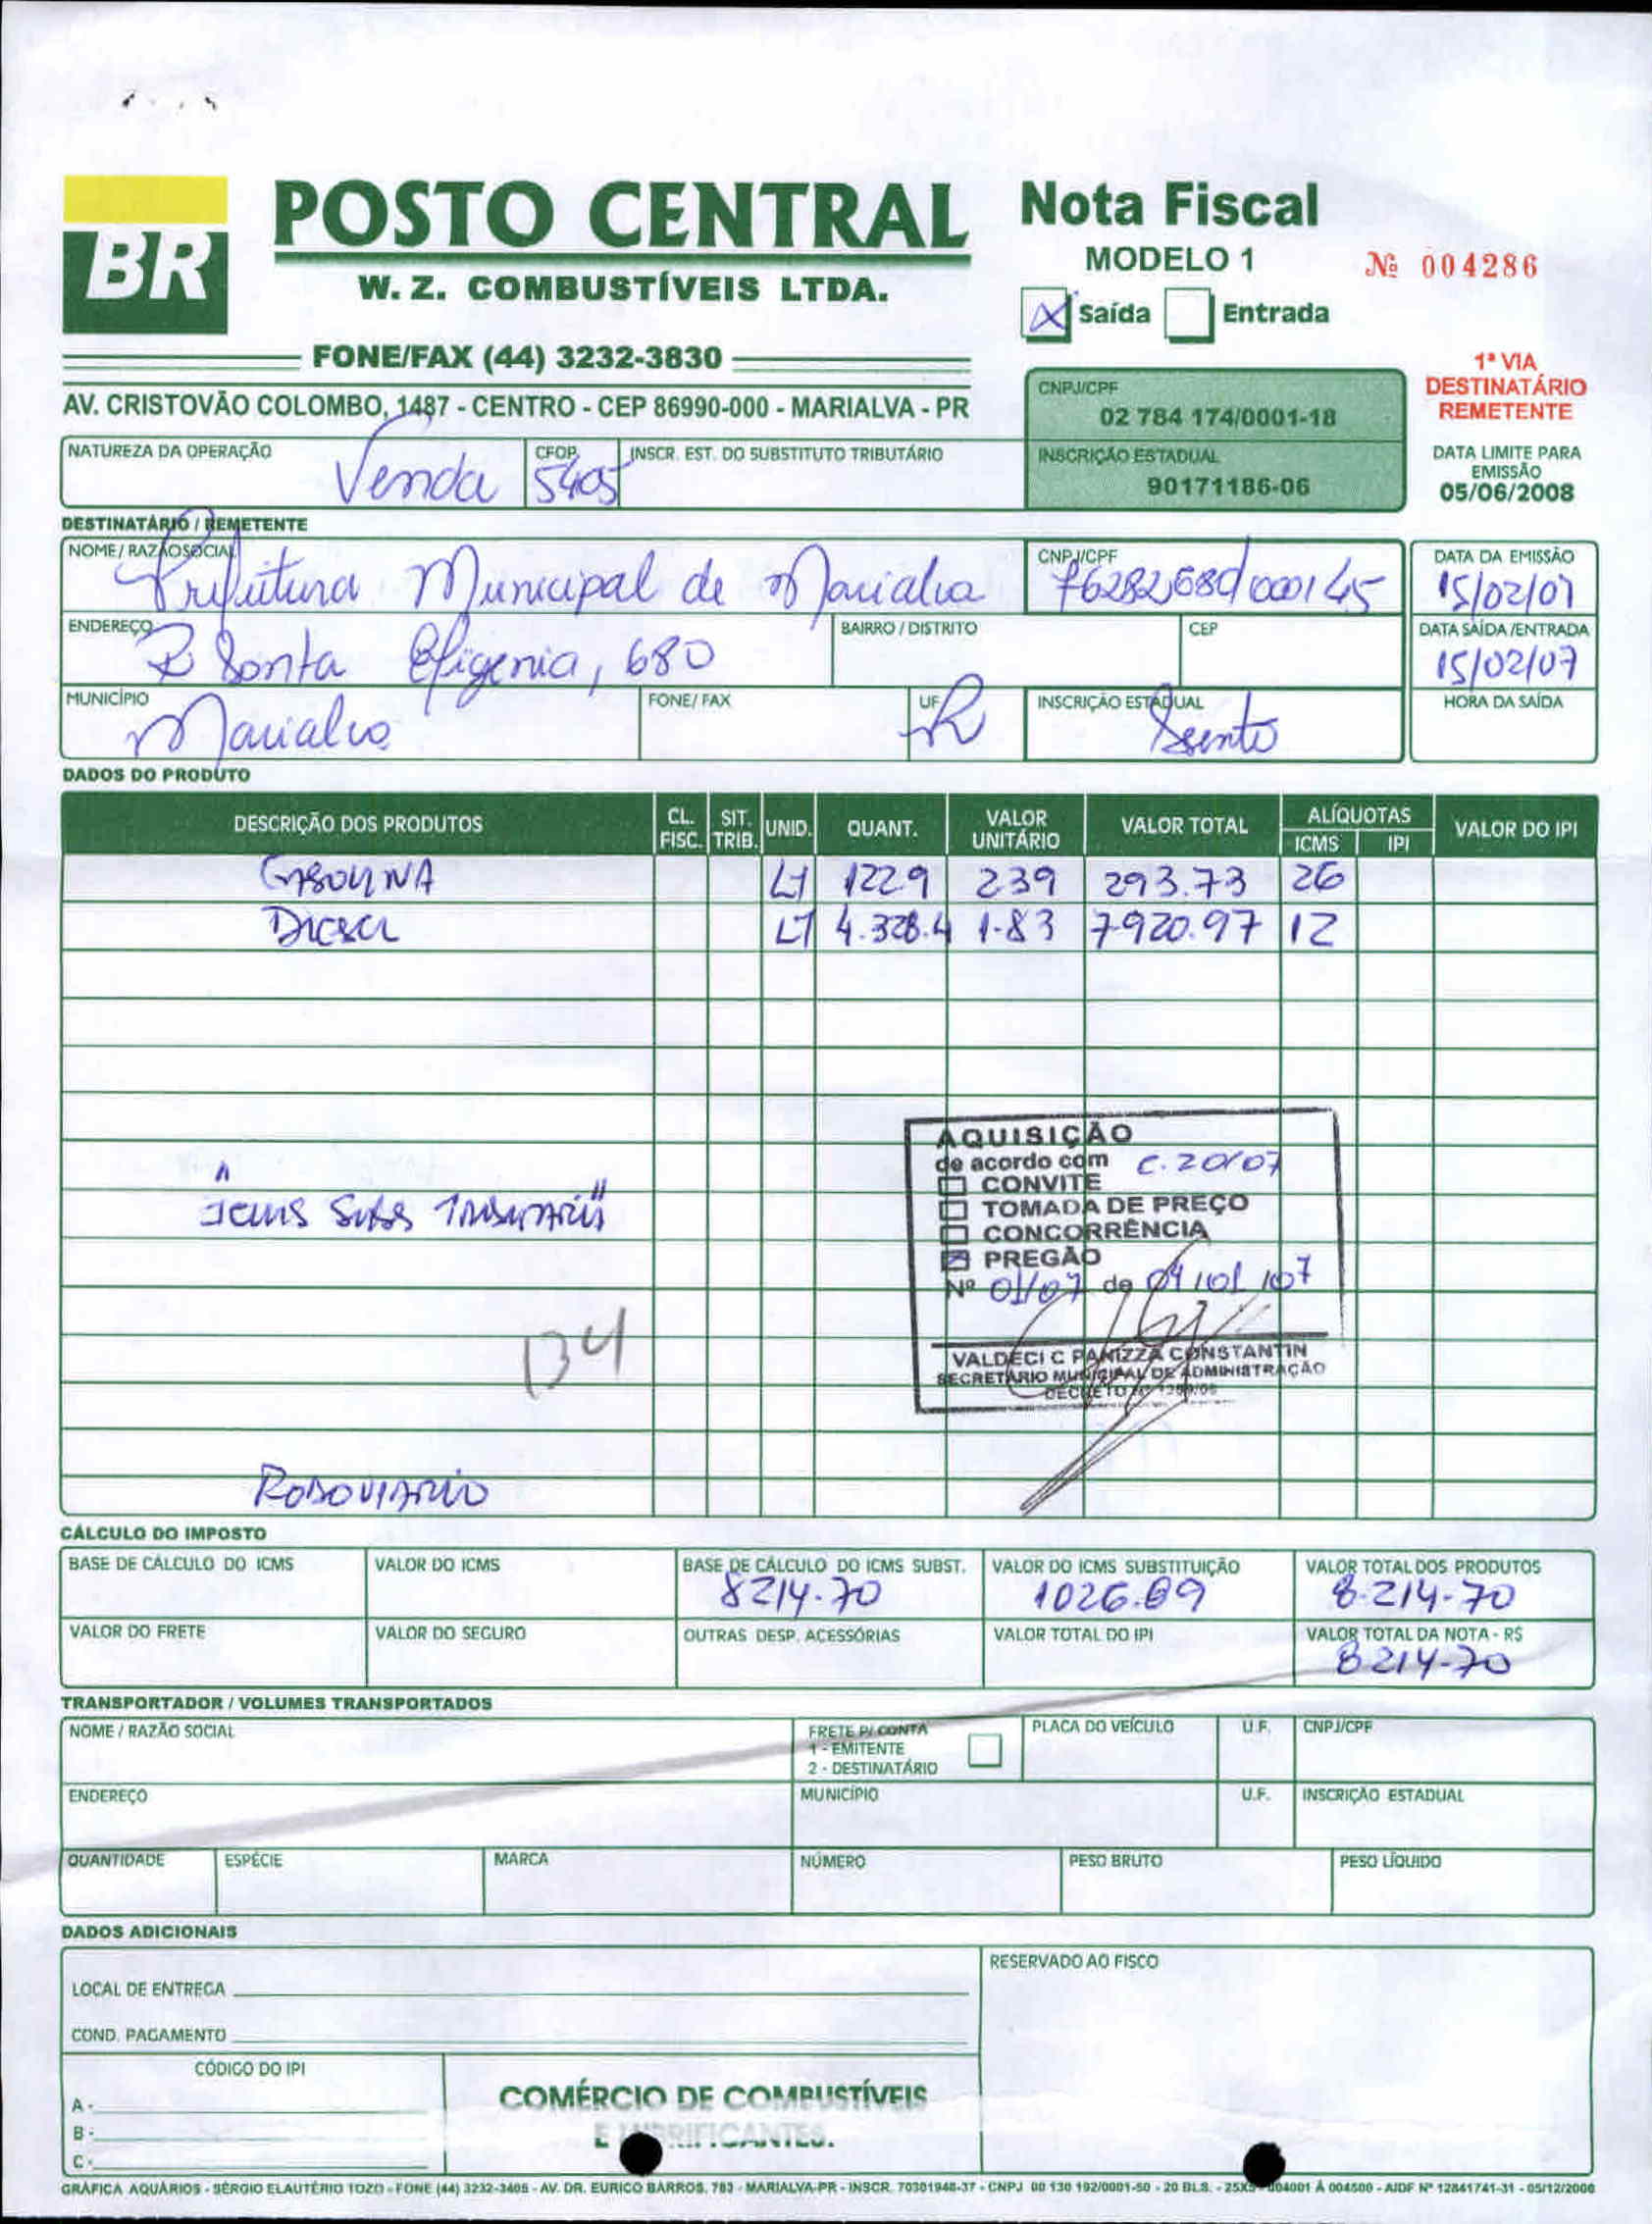 BR
POSTO CENTRAL
W. Z. COMBUSTÍVEIS LTDA.
FONE/FAX (44) 3232-3830
AV. CRISTOVÃO COLOMBO, 1487 - CENTRO - CEP 86990-000 - MARIALVA - PR
Nota Fiscal
MODELO 1
Nº 004286
X Saída Entrada
1ª VIA
DESTINATÁRIO
REMETENTE
CNPJ/CPF
02 784 174/0001-18
INSCRIÇÃO ESTADUAL
90171186-06
DATA LIMITE PARA
EMISSÃO
05/06/2008
NATUREZA DA OPERAÇÃO Venda
CFOP 5405
INSCR. EST. DO SUBSTITUTO TRIBUTÁRIO
DESTINATÁRIO / REMETENTE
NOME / RAZÃO SOCIAL Prefeitura Municipal de Marialva
CNPJ/CPF 76282680/000145
DATA DA EMISSÃO 15/02/07
ENDEREÇO R Santa Efigenia, 680
BAIRRO / DISTRITO
CEP
DATA SAÍDA/ENTRADA 15/02/07
MUNICÍPIO Marialva
FONE/ FAX
UF PR
INSCRIÇÃO ESTADUAL Isento
HORA DA SAÍDA
DADOS DO PRODUTO
DESCRIÇÃO DOS PRODUTOS CL. FISC. SIT. TRIB. UNID. QUANT. VALOR UNITÁRIO VALOR TOTAL ALÍQUOTAS ICMS IPI VALOR DO IPI
GASOLINA LT 1229 239 293.73 26
DIESEL LT 4.328.4 1.83 7920.97 12
AQUISIÇÃO
de acordo com C. 20/07
CONVITE
TOMADA DE PREÇO
CONCORRÊNCIA
PREGÃO
Nº 01/07 de 04/01/07
VALDECI C PANIZZA CONSTANTIN
SECRETARIO MUNICIPAL DE ADMINISTRAÇÃO
DECRETO Nº
"ICMS SUBS TRIBUTARIA"
134
RODOVIARIO
CÁLCULO DO IMPOSTO
BASE DE CÁLCULO DO ICMS
VALOR DO ICMS
BASE DE CÁLCULO DO ICMS SUBST. 8214.70
VALOR DO ICMS SUBSTITUIÇÃO 1026.89
VALOR TOTAL DOS PRODUTOS 8.214.70
VALOR DO FRETE
VALOR DO SEGURO
OUTRAS DESP. ACESSÓRIAS
VALOR TOTAL DO IPI
VALOR TOTAL DA NOTA - R$ 8214.70
TRANSPORTADOR / VOLUMES TRANSPORTADOS
NOME / RAZÃO SOCIAL
FRETE P/ CONTA
1 - EMITENTE
2 - DESTINATÁRIO
PLACA DO VEÍCULO
U.F.
CNPJ/CPF
ENDEREÇO
MUNICÍPIO
U.F.
INSCRIÇÃO ESTADUAL
QUANTIDADE
ESPÉCIE
MARCA
NÚMERO
PESO BRUTO
PESO LÍQUIDO
DADOS ADICIONAIS
LOCAL DE ENTREGA
COND. PAGAMENTO
RESERVADO AO FISCO
CÓDIGO DO IPI
A -
B -
C -
COMÉRCIO DE COMBUSTÍVEIS
E LUBRIFICANTES.
GRÁFICA AQUÁRIOS - SÉRGIO ELAUTÉRIO TOZO - FONE (44) 3232-3405 - AV. DR. EURICO BARROS, 783 - MARIALVA-PR - INSCR. 70301948-37 - CNPJ 00 130 192/0001-50 - 20 BLS. - 25X5 - 004001 À 004500 - AIDF Nº 12841741-31 - 05/12/2006